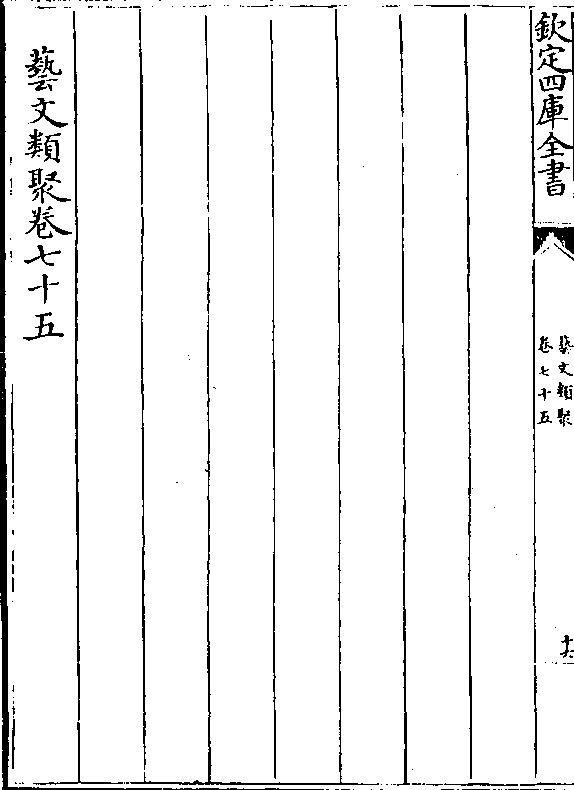 欽定四庫全書
藝文類聚
卷七十五
藝文類聚卷七十五